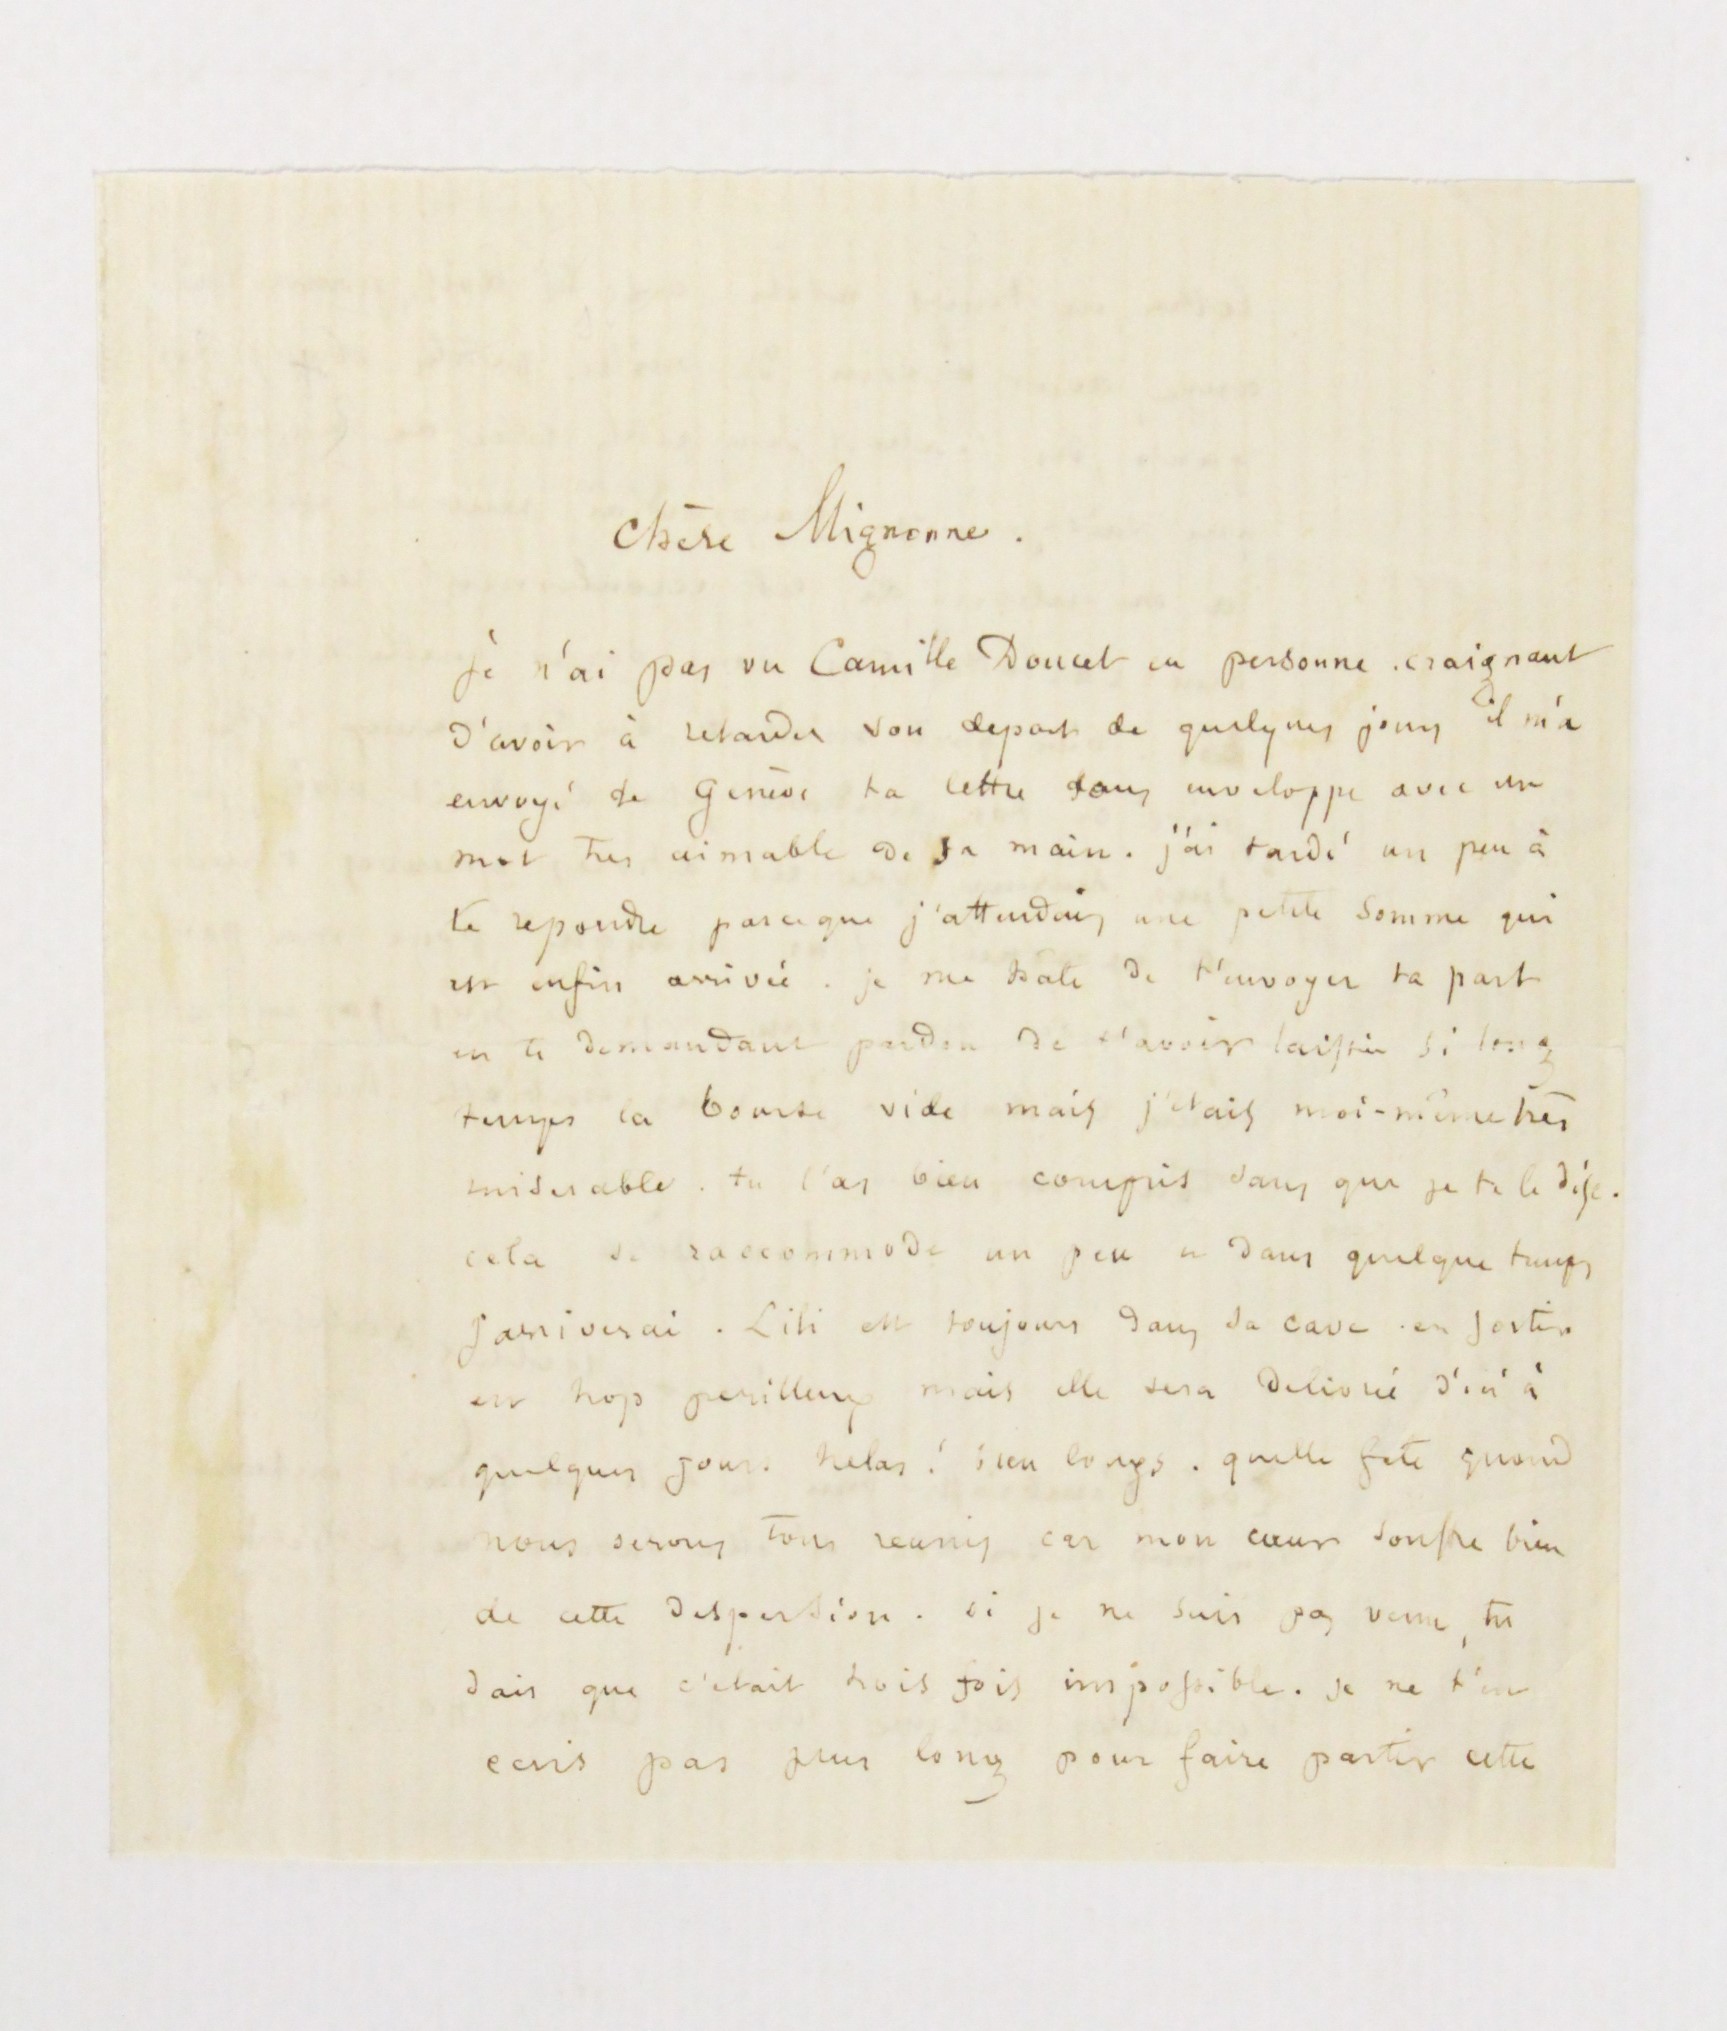 Chère Mignonne.
je n'ai pas vu Camille Doucet en personne. craignant
d'avoir à retarder son depart de quelques jours il m'a
envoyé de Genève ta lettre sous enveloppe avec un
mot tres aimable de sa main. j'ai tardé un peu à
te repondre parceque j'attendais une petite somme qui
est enfin arrivée. je me hâte de t'envoyer ta part
en te demandant pardon de t'avoir laissée si long
temps la bourse vide mais j'etais moi-même très
miserable. tu l'as bien compris sans que je te le dise.
cela se raccommode un peu et dans quelque temps
j'arriverai. Lili est toujours dans sa cave. en sortir
est trop perilleux mais elle sera delivrée d'ici à
quelques jours helas! bien longs. quelle fete quand
nous serons tous reunis car mon cœur souffre bien
de cette dispersion. si je ne suis pas venu, tu
sais que c'etait trois fois impossible. je ne t'en
ecris pas plus long pour faire partir cette